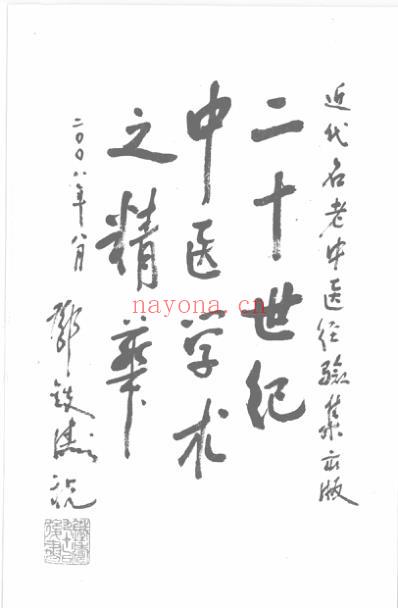 近代名老中医经验集出版
二十世纪
中医学术
之精华
二〇〇八年八月
邓铁涛祝
nayona.cn